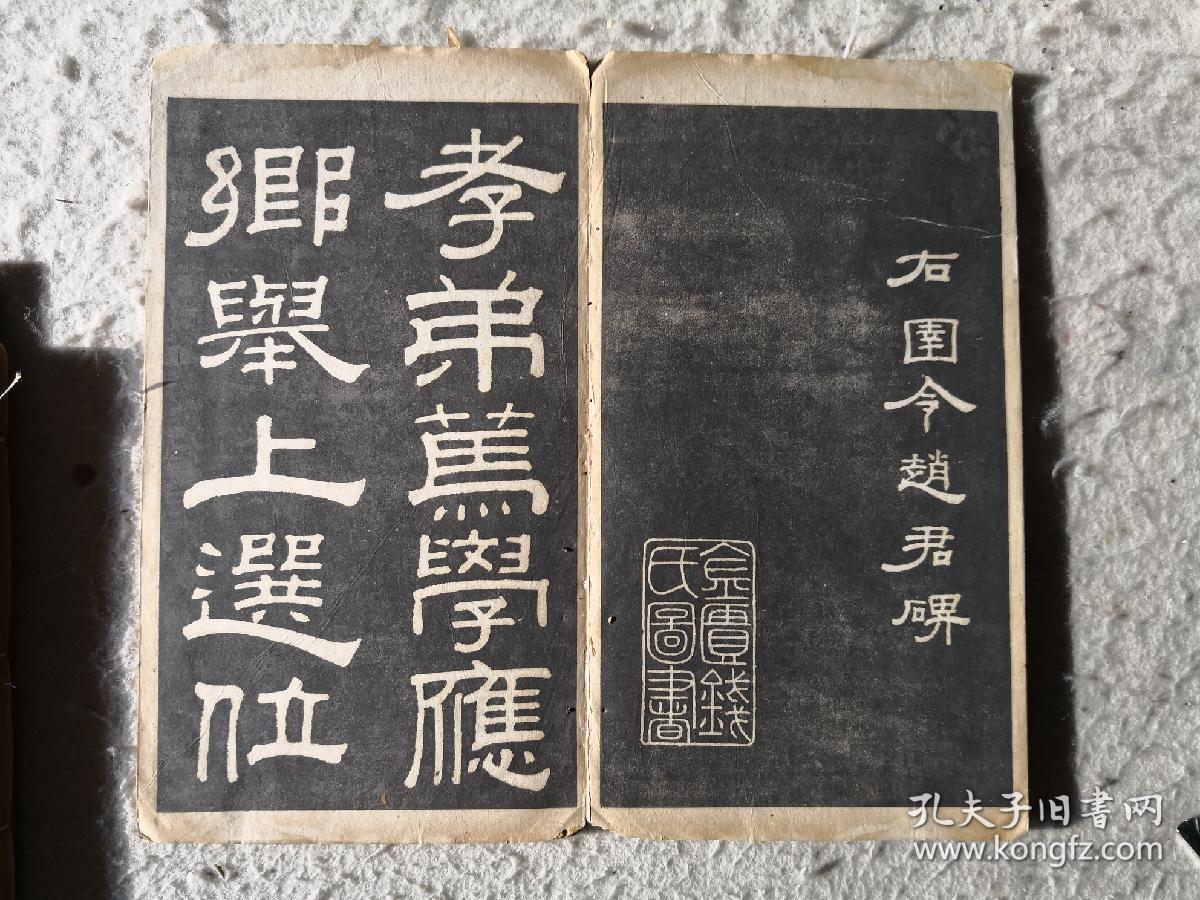 右圉令趙君碑
金匱錢
氏圖書
孝弟篤學應
鄉舉上選位
孔夫子旧書网
www.kongfz.com